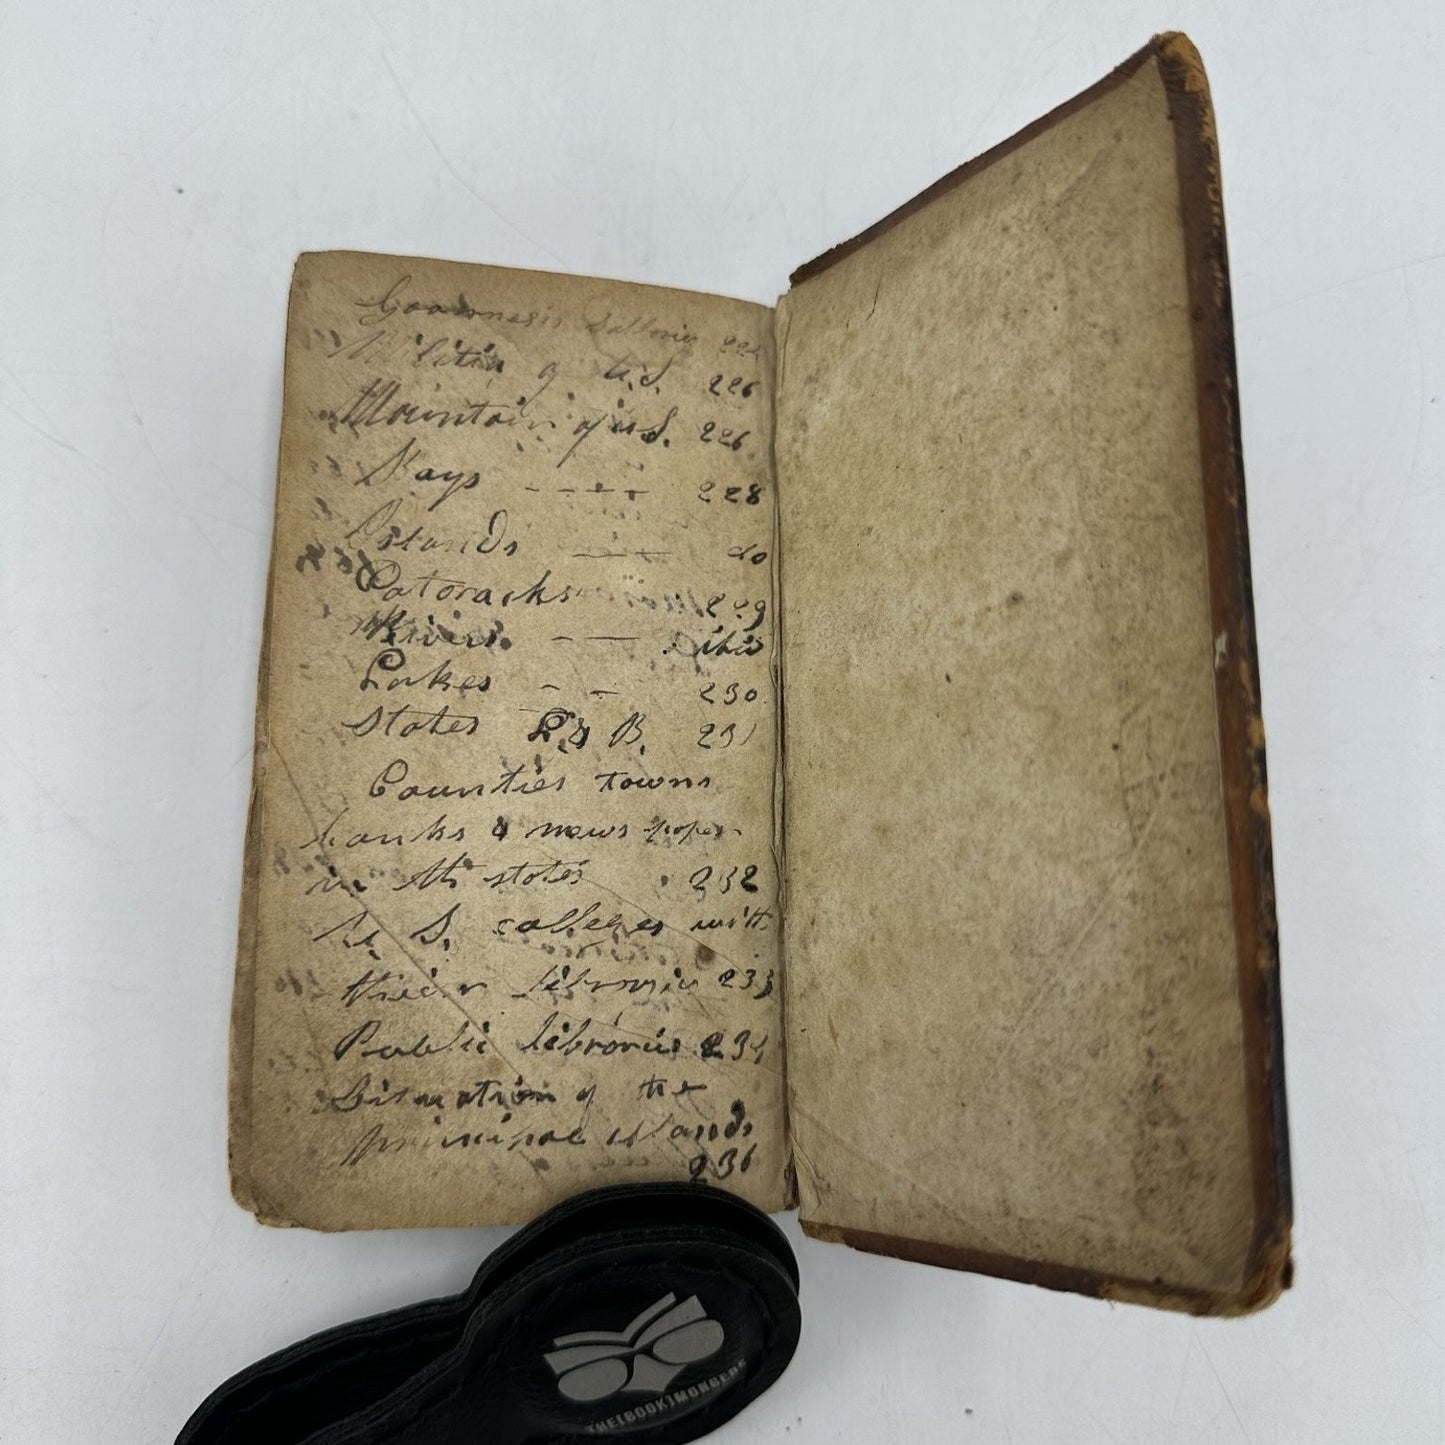 Militia of U.S. 226
Mountain of U S. 226
Bays ---- 228
Islands --- do
Catoracks 229
Rivers. -- ibid
Lakes -- 230
States B. 231
Counties towns
banks & news paper
in the states 232
U. S. colleges with
their libraries 233
Public libraries 234
Situation of the
principal islands
236
THE[BOOK]MONGERS